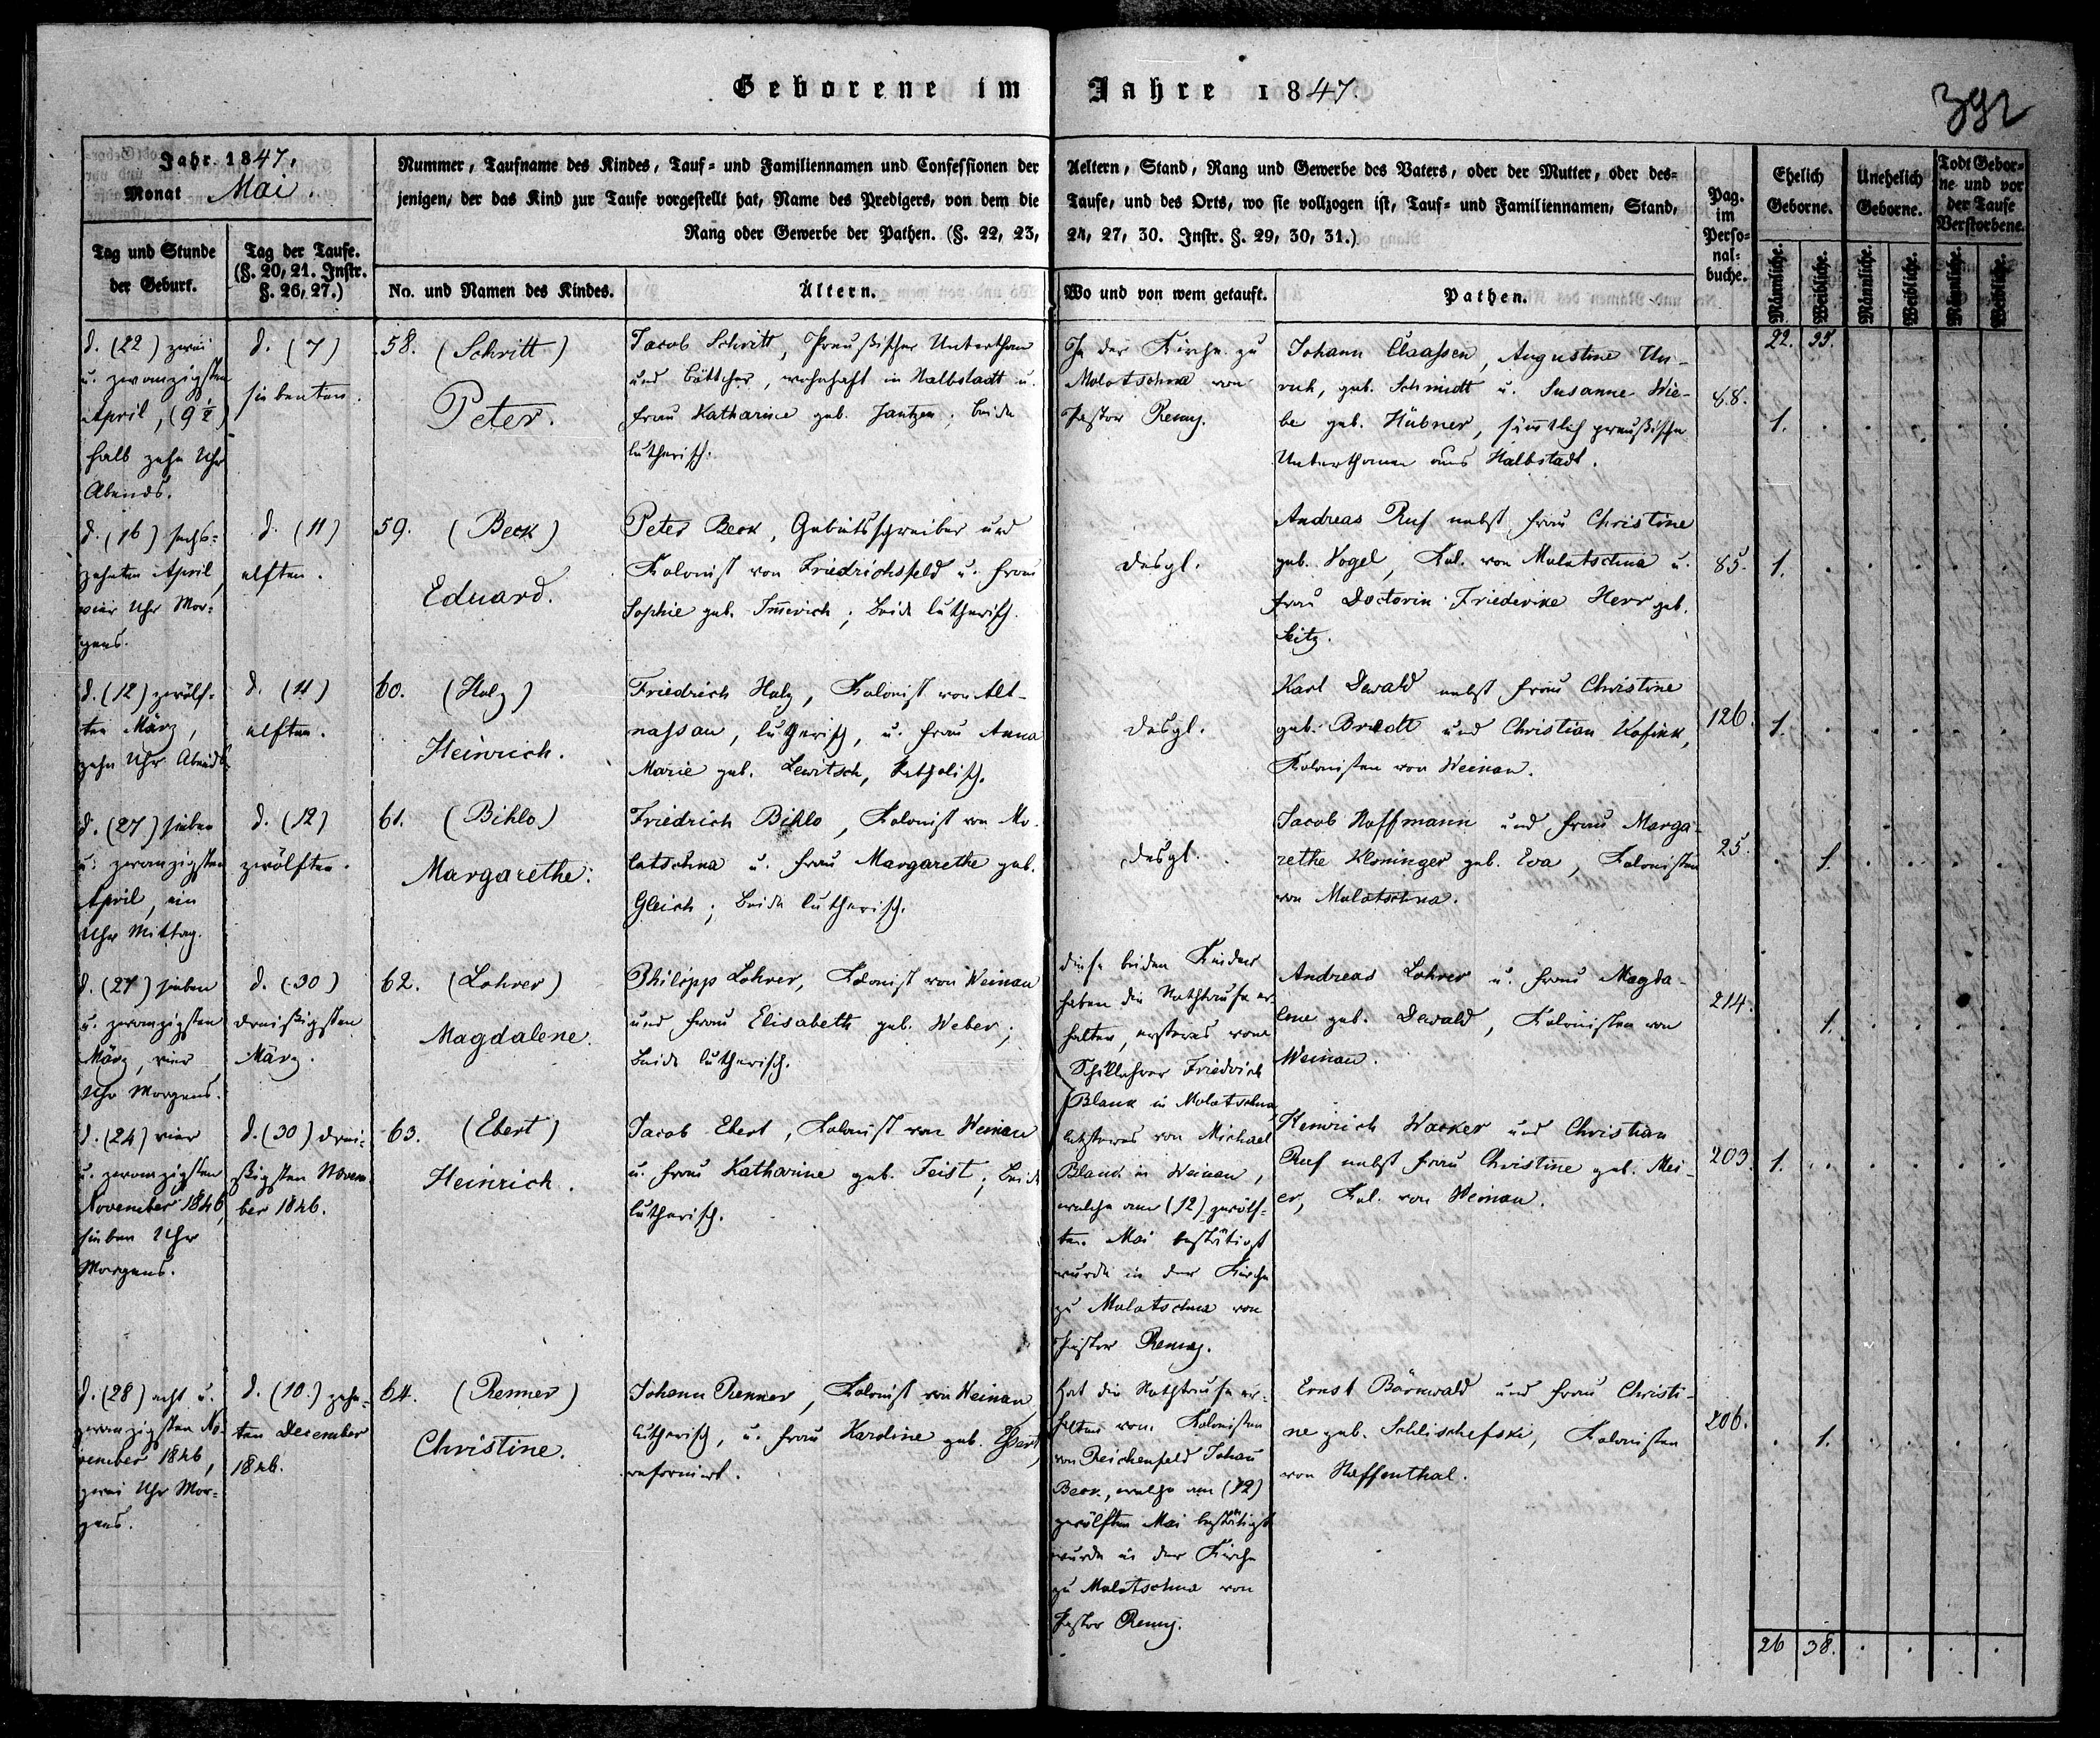 Geborene im Jahre 1847.
392
Jahr 1847.
Monat Mai.
Nummer, Taufname des Kindes, Tauf- und Familiennamen und Confessionen der Aeltern, Stand, Rang und Gewerbe des Vaters, oder der Mutter, oder des-
jenigen, der das Kind zur Taufe vorgestellt hat, Name des Predigers, von dem die Taufe, und des Orts, wo sie vollzogen ist, Tauf- und Familiennamen, Stand,
Rang oder Gewerbe der Pathen. (§. 22, 23, 24, 27, 30. Instr. §. 29, 30, 31.)
Pag.
im
Perso-
nal-
buche.
Ehelich
Geborne.
Unehelich
Geborne.
Todt Gebor-
ne und vor
der Taufe
Verstorbene.
Tag und Stunde
der Geburt.
Tag der Taufe.
(§. 20, 21. Instr.
§. 26, 27.)
No. und Namen des Kindes.
Ältern.
Wo und von wem getauft.
Pathen.
Männliche.
Weibliche.
Männliche.
Weibliche.
Männliche.
Weibliche.
22. 35.
d. (22) zwei
u. zwanzigsten
April, (9½)
halb zehn Uhr
Abends.
d. (7)
siebenten.
58. (Schritt)
Peter.
Jacob Schritt, Preußischer Unterthan
und Böttcher, wohnhaft in Halbstadt u.
Frau Katharine geb. Jantzen; beide
lutherisch.
In der Kirche zu
Molotschna von
Pastor Remy.
Johann Claassen, Augustine Un-
ruh, geb. Schmidt u. Susanne Wie-
be geb. Hübner, sämtlich preußische
Unterthanen aus Halbstadt.
88.
1.
d. (16) sechs-
zehnten April,
vier Uhr Mor-
gens.
d. (11)
elften.
59. (Beck)
Eduard.
Peter Beck, Gebietsschreiber und
Kolonist von Friedrichsfeld u. Frau
Sophie geb. Im̄erich; beide lutherisch.
desgl.
Andreas Ruf nebst Frau Christine
geb. Vogel, Kol. von Molotschna u.
Frau Doctorin Friederike Herr geb.
Seitz.
85.
1.
d. (12) zwölf-
ten März,
zehn Uhr Abends.
d. (11)
elften.
60. (Holz)
Heinrich.
Friedrich Holz, Kolonist von Alt-
nassau, lutherisch, u. Frau Anna
Marie geb. Lewitsch, katholisch.
desgl.
Karl Dewald nebst Frau Christine
geb. Bredt und Christian Kofink,
Kolonisten von Weinau.
126.
1.
d. (27) sieben
u. zwanzigsten
April, ein
Uhr Mittag.
d. (12)
zwölften.
61. (Bihlo)
Margarethe.
Friedrich Bihlo, Kolonist von Mo-
latschna u. Frau Margarethe geb.
Gleich; beide lutherisch.
desgl.
Jacob Hoffmann und Frau Marga-
rethe Weninger geb. Eva, Kolonisten
von Molotschna.
25.
1.
d. (27) sieben
u. zwanzigsten
März, vier
Uhr Morgens.
d. (30)
dreißigsten
März.
62. (Lohrer)
Magdalene.
Philipp Lohrer, Kolonist von Weinau
und Frau Elisabeth geb. Weber;
beide lutherisch.
diese beiden Kinder
haben die Nothtaufe er-
halten, ersteres vom
Schullehrer Friedrich
Blank in Molotschna,
letzteres von Michael
Blank in Weinau,
welche am (12) zwölf-
ten Mai bestätigt
wurde in der Kirche
zu Molotschna von
Pastor Remy.
Andreas Lohrer u. Frau Magda-
lene geb. Dewald, Kolonisten von
Weinau.
214.
1.
d. (24) vier
u. zwanzigsten
November 1846,
sieben Uhr
Morgens.
d. (30) drei-
ßigsten Novem-
ber 1846.
63. (Ebert)
Heinrich.
Jacob Ebert, Kolonist von Weinau
u. Frau Katharine geb. Feist; beide
lutherisch.
Heinrich Wacker und Christian
Ruf nebst Frau Christine geb. Mei-
er, Kol. von Weinau.
203.
1.
d. (28) acht u.
zwanzigsten No-
vember 1846,
zwei Uhr Mor-
gens.
d. (10.) zehn-
ten December
1846.
64. (Renner)
Christine.
Johann Renner, Kolonist von Weinau,
lutherisch, u. Frau Karoline geb.
reformirt.
hat die Nothtaufe er-
halten vom Kolonisten
von Reichenfeld Johan̄
Beck, welche am (12)
zwölften Mai bestätigt
wurde in der Kirche
zu Molotschna von
Pastor Remy.
Ernst Bärwald und Frau Christi-
ne geb. Schlischefski, Kolonisten
von Hoffenthal.
206.
1.
26 38.